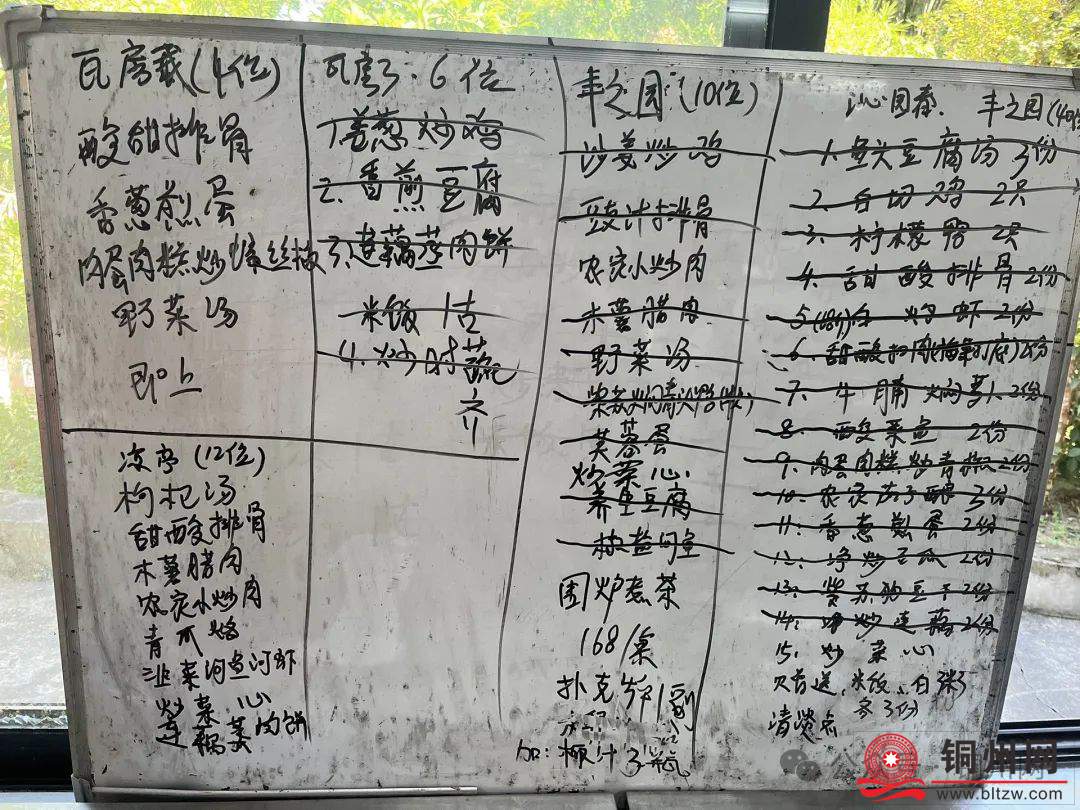 瓦房散(4位)
酸甜排骨
香葱煎蛋
肉蛋肉糕炒
野菜汤
即上
瓦房 6位
1.姜葱炒鸡
2.香煎豆腐
3.莲藕蒸肉饼
米饭
4.炒时蔬
齐
凉亭(12位)
枸杞汤
甜酸排骨
木薯腊肉
农家小炒肉
青爪烙
韭菜河鱼河虾
炒菜心
莲藕蒸肉饼
丰之园(10位)
沙姜炒鸡
豉汁排骨
农家小炒肉
木薯腊肉
野菜汤
紫苏焖
芙蓉蛋
炒菜心
养生豆腐
椒盐
围炉煮茶
168/桌
扑克牌1副
加:榄汁3瓶
沁园春. 丰之园(40位
1.鱼头豆腐汤3份
2.白切鸡2只
3.柠檬鸭2只
4.甜酸排骨2份
5 白灼虾2份
6.甜酸扣肉 2份
7.牛腩焖 2份
8.酸菜鱼 2份
9.肉蛋肉糕炒青椒2份
10.农家茄子酿3份
11.香葱煎蛋2份
12.净炒 2份
13.紫苏 豆干2份
14.净炒莲藕2份
15.炒菜心
送,米饭、白粥
各3份
清淡点
铜州网
www.bltzw.com